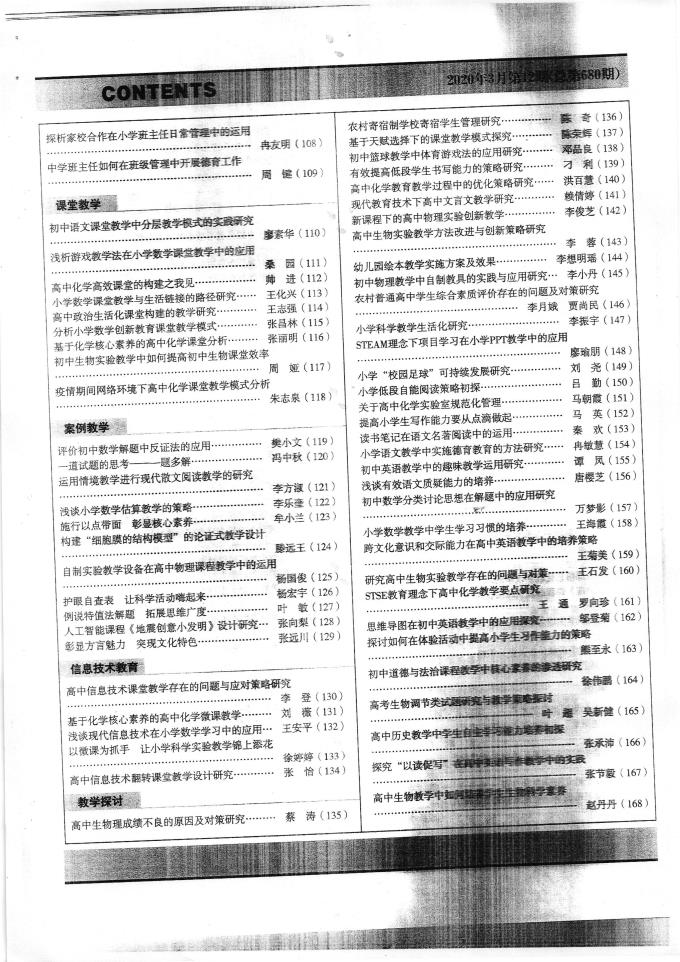 CONTENTS
2020年3月第12期(总第680期)
探析家校合作在小学班主任日常管理中的运用
冉友明（108）
中学班主任如何在班级管理中开展德育工作
周 健（109）
课堂教学
初中语文课堂教学中分层教学模式的实践研究
廖素华（110）
浅析游戏教学法在小学数学课堂教学中的应用
桑 园（111）
高中化学高效课堂的构建之我见 帅 进（112）
小学数学课堂教学与生活链接的路径研究 王化兴（113）
高中政治生活化课堂构建的教学研究 王志强（114）
分析小学数学创新教育课堂教学模式 张昌林（115）
基于化学核心素养的高中化学课堂分析 张丽明（116）
初中生物实验教学中如何提高初中生物课堂效率
周 娅（117）
疫情期间网络环境下高中化学课堂教学模式分析
朱志泉（118）
案例教学
评价初中数学解题中反证法的应用 樊小文（119）
一道试题的思考——一题多解 冯中秋（120）
运用情境教学进行现代散文阅读教学的研究
李方淑（121）
浅谈小学数学估算教学的策略 李乐奎（122）
施行以点带面 彰显核心素养 牟小兰（123）
构建“细胞膜的结构模型”的论证式教学设计
滕远王（124）
自制实验教学设备在高中物理课程教学中的运用
杨国俊（125）
护眼自查表 让科学活动嗨起来 杨宏宇（126）
例说特值法解题 拓展思维广度 叶 敏（127）
人工智能课程《地震创意小发明》设计研究 张向梨（128）
彰显方言魅力 突现文化特色 张远川（129）
信息技术教育
高中信息技术课堂教学存在的问题与应对策略研究
李 登（130）
基于化学核心素养的高中化学微课教学 刘 薇（131）
浅谈现代信息技术在小学数学学习中的应用 王安平（132）
以微课为抓手 让小学科学实验教学锦上添花
徐婷婷（133）
高中信息技术翻转课堂教学设计研究 张 怡（134）
教学探讨
高中生物理成绩不良的原因及对策研究 蔡 涛（135）
农村寄宿制学校寄宿学生管理研究 陈 奇（136）
基于天赋选择下的课堂教学模式探究 陈荣辉（137）
初中篮球教学中体育游戏法的应用研究 邓品良（138）
有效提高低段学生书写能力的策略研究 刁 利（139）
高中化学教育教学过程中的优化策略研究 洪百慧（140）
现代教育技术下高中文言文教学研究 赖倩婷（141）
新课程下的高中物理实验创新教学 李俊芝（142）
高中生物实验教学方法改进与创新策略研究
李 蓉（143）
幼儿园绘本教学实施方案及效果 李想明瑶（144）
初中物理教学中自制教具的实践与应用研究 李小丹（145）
农村普通高中学生综合素质评价存在的问题及对策研究
李月娥 贾尚民（146）
小学科学教学生活化研究 李振宇（147）
STEAM理念下项目学习在小学PPT教学中的应用
廖瑜朋（148）
小学“校园足球”可持续发展研究 刘 尧（149）
小学低段自能阅读策略初探 吕 勤（150）
关于高中化学实验室规范化管理 马朝霞（151）
提高小学生写作能力要从点滴做起 马 英（152）
读书笔记在语文名著阅读中的运用 秦 欢（153）
小学语文教学中实施德育教育的方法研究 冉敏慧（154）
初中英语教学中的趣味教学运用研究 谭 凤（155）
浅谈有效语文质疑能力的培养 唐樱芝（156）
初中数学分类讨论思想在解题中的应用研究
万梦影（157）
小学数学教学中学生学习习惯的培养 王海霞（158）
跨文化意识和交际能力在高中英语教学中的培养策略
王菊美（159）
研究高中生物实验教学存在的问题与对策 王石发（160）
STSE教育理念下高中化学教学要点研究
王 通 罗向珍（161）
思维导图在初中英语教学中的应用探究 邬登菊（162）
探讨如何在体验活动中提高小学生习作能力的策略
熊至永（163）
初中道德与法治课程教学中核心素养的渗透研究
徐伟鹏（164）
高考生物调节类试题研究与教学策略探讨
叶 超 吴新健（165）
高中历史教学中学生自主学习能力培养初探
张承沛（166）
探究“以读促写”在高中英语写作教学中的实践
张节毅（167）
高中生物教学中如何培养学生生物科学素养
赵丹丹（168）